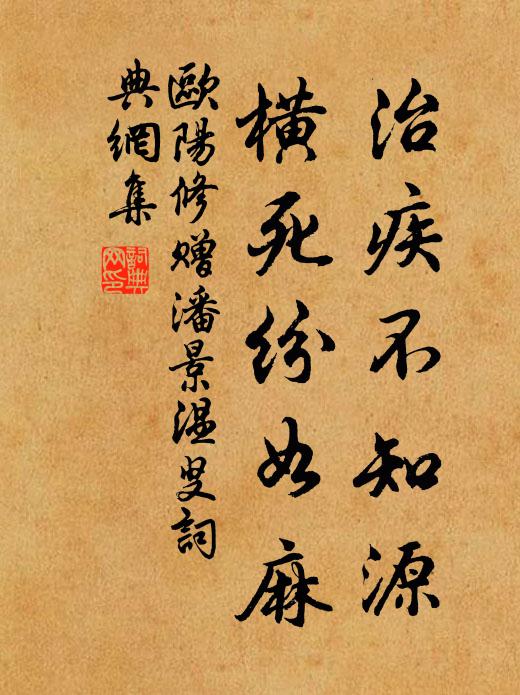 治疾不知源
橫死紛如麻
歐陽修贈潘景温叟詞
典網集
詞典
网印